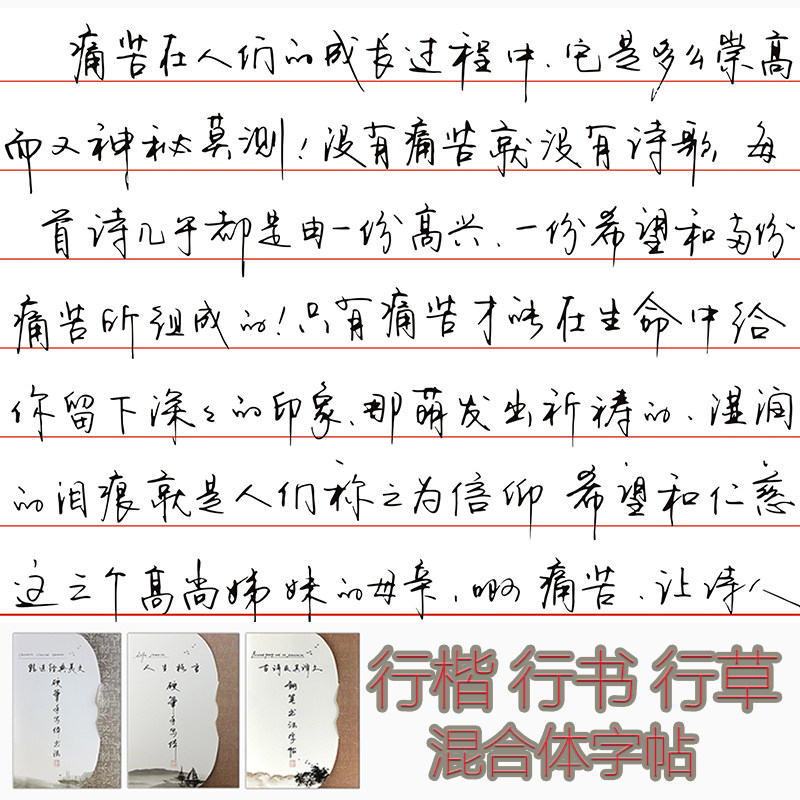 痛苦在人们的成长过程中、它是多么崇高
而又神秘莫测！没有痛苦就没有诗歌，每
首诗几乎都是由一份高兴、一份希望和两份
痛苦所组成的！只有痛苦才能在生命中给
你留下深々的印象、那萌发出祈祷的、湿润
的泪痕就是人们称之为信仰 希望和仁慈
这三个高尚姊妹的母亲，啊 痛苦、让诗人
精选经典美文
硬笔手写体书法
人生格言
硬笔手写体
钢笔书法字帖
行楷 行书 行草
混合体字帖